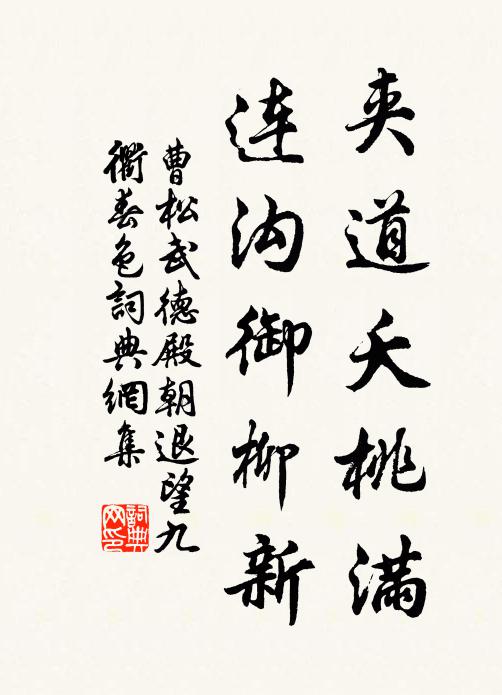 夹道夭桃满
连沟御柳新
曹松武德殿朝退望九
衢春色詞典網集
詞典
网印